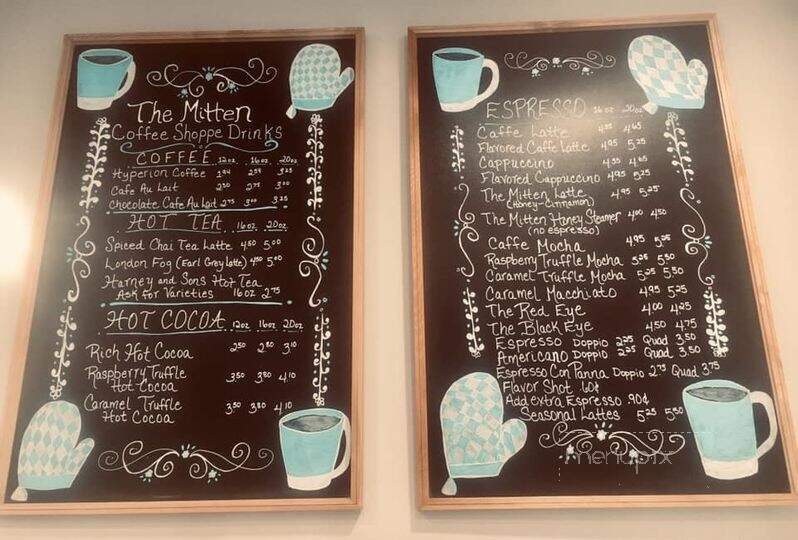 The Mitten
Coffee Shoppe Drinks
COFFEE 12oz 16oz 20oz
Hyperion Coffee 2.59 3.25
Cafe Au Lait 2.50 2.75 3.00
Chocolate Cafe Au Lait 2.75 3.00 3.25
HOT TEA 16oz 20oz
Spiced Chai Tea Latte 4.50 5.00
London Fog (Earl Grey Latte) 4.50 5.00
Harney and Sons Hot Tea
Ask for Varieties 16oz 2.75
HOT COCOA 12oz 16oz 20oz
Rich Hot Cocoa 2.50 2.80 3.10
Raspberry Truffle
Hot Cocoa 3.50 3.80 4.10
Caramel Truffle
Hot Cocoa 3.50 3.80 4.10
ESPRESSO 16oz 20oz
Caffe Latte 4.35 4.65
Flavored Caffe Latte 4.95 5.25
Cappuccino 4.35 4.65
Flavored Cappuccino 4.95 5.25
The Mitten Latte 4.95 5.25
(Honey-Cinnamon)
The Mitten Honey Steamer 4.00 4.50
(no espresso)
Caffe Mocha 4.95 5.25
Raspberry Truffle Mocha 5.25 5.50
Caramel Truffle Mocha 5.25 5.50
Caramel Macchiato 4.95 5.25
The Red Eye 4.00 4.25
The Black Eye 4.50 4.75
Espresso Doppio 2.25 Quad 3.50
Americano Doppio 2.25 Quad 3.50
Espresso Con Panna Doppio 2.75 Quad 3.75
Flavor Shot 60¢
Add extra Espresso .90¢
Seasonal Lattes 5.25 5.50
menupix